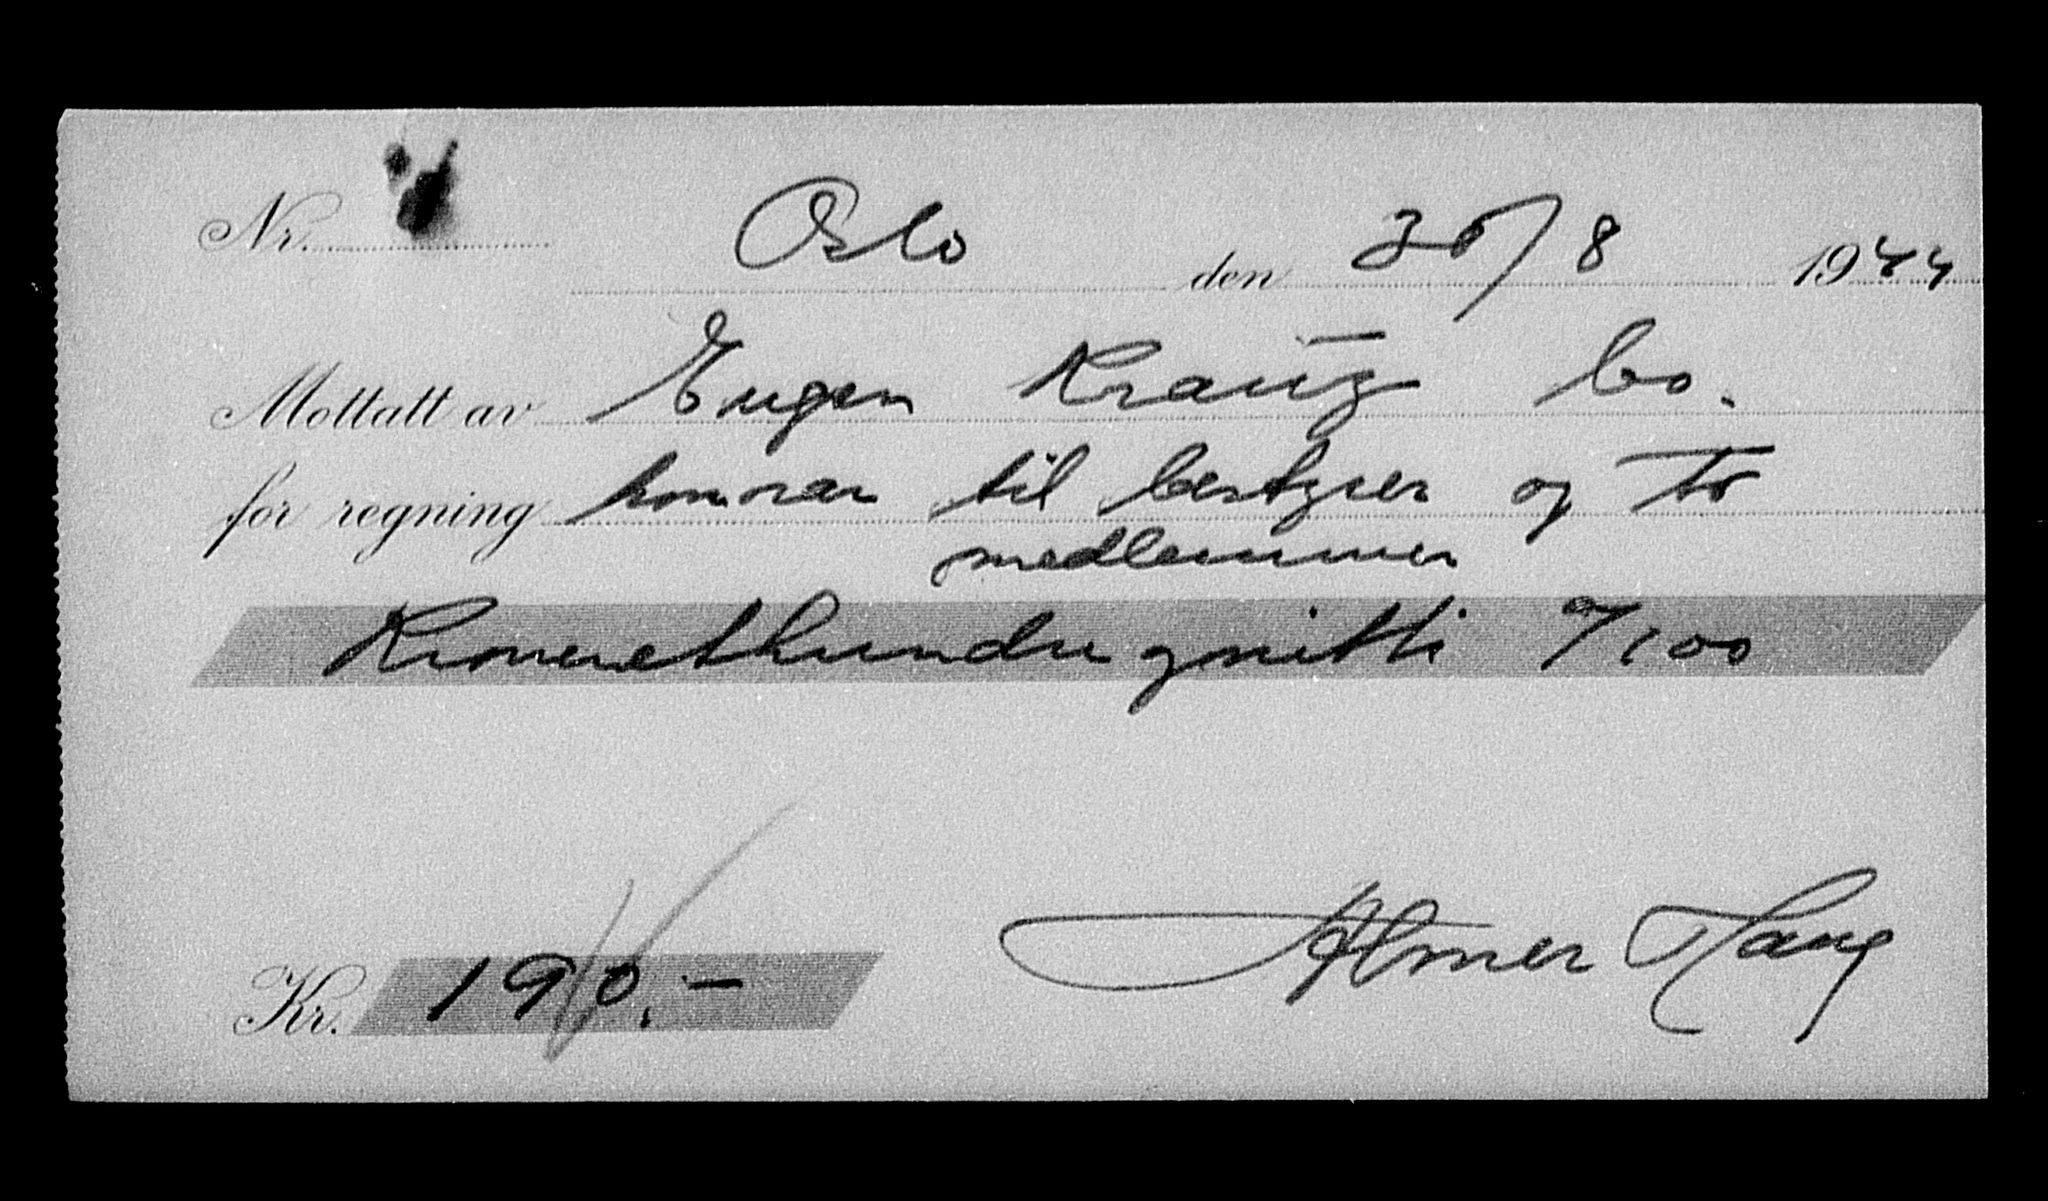 Nr. Oslo den 30/8 1944
Mottatt av Eugen Krautz bo.
for regning honorar til bestyrer og to
medlemmer
Kroneretthundreognitti 0/100
Kr. 190.- Almer Haug